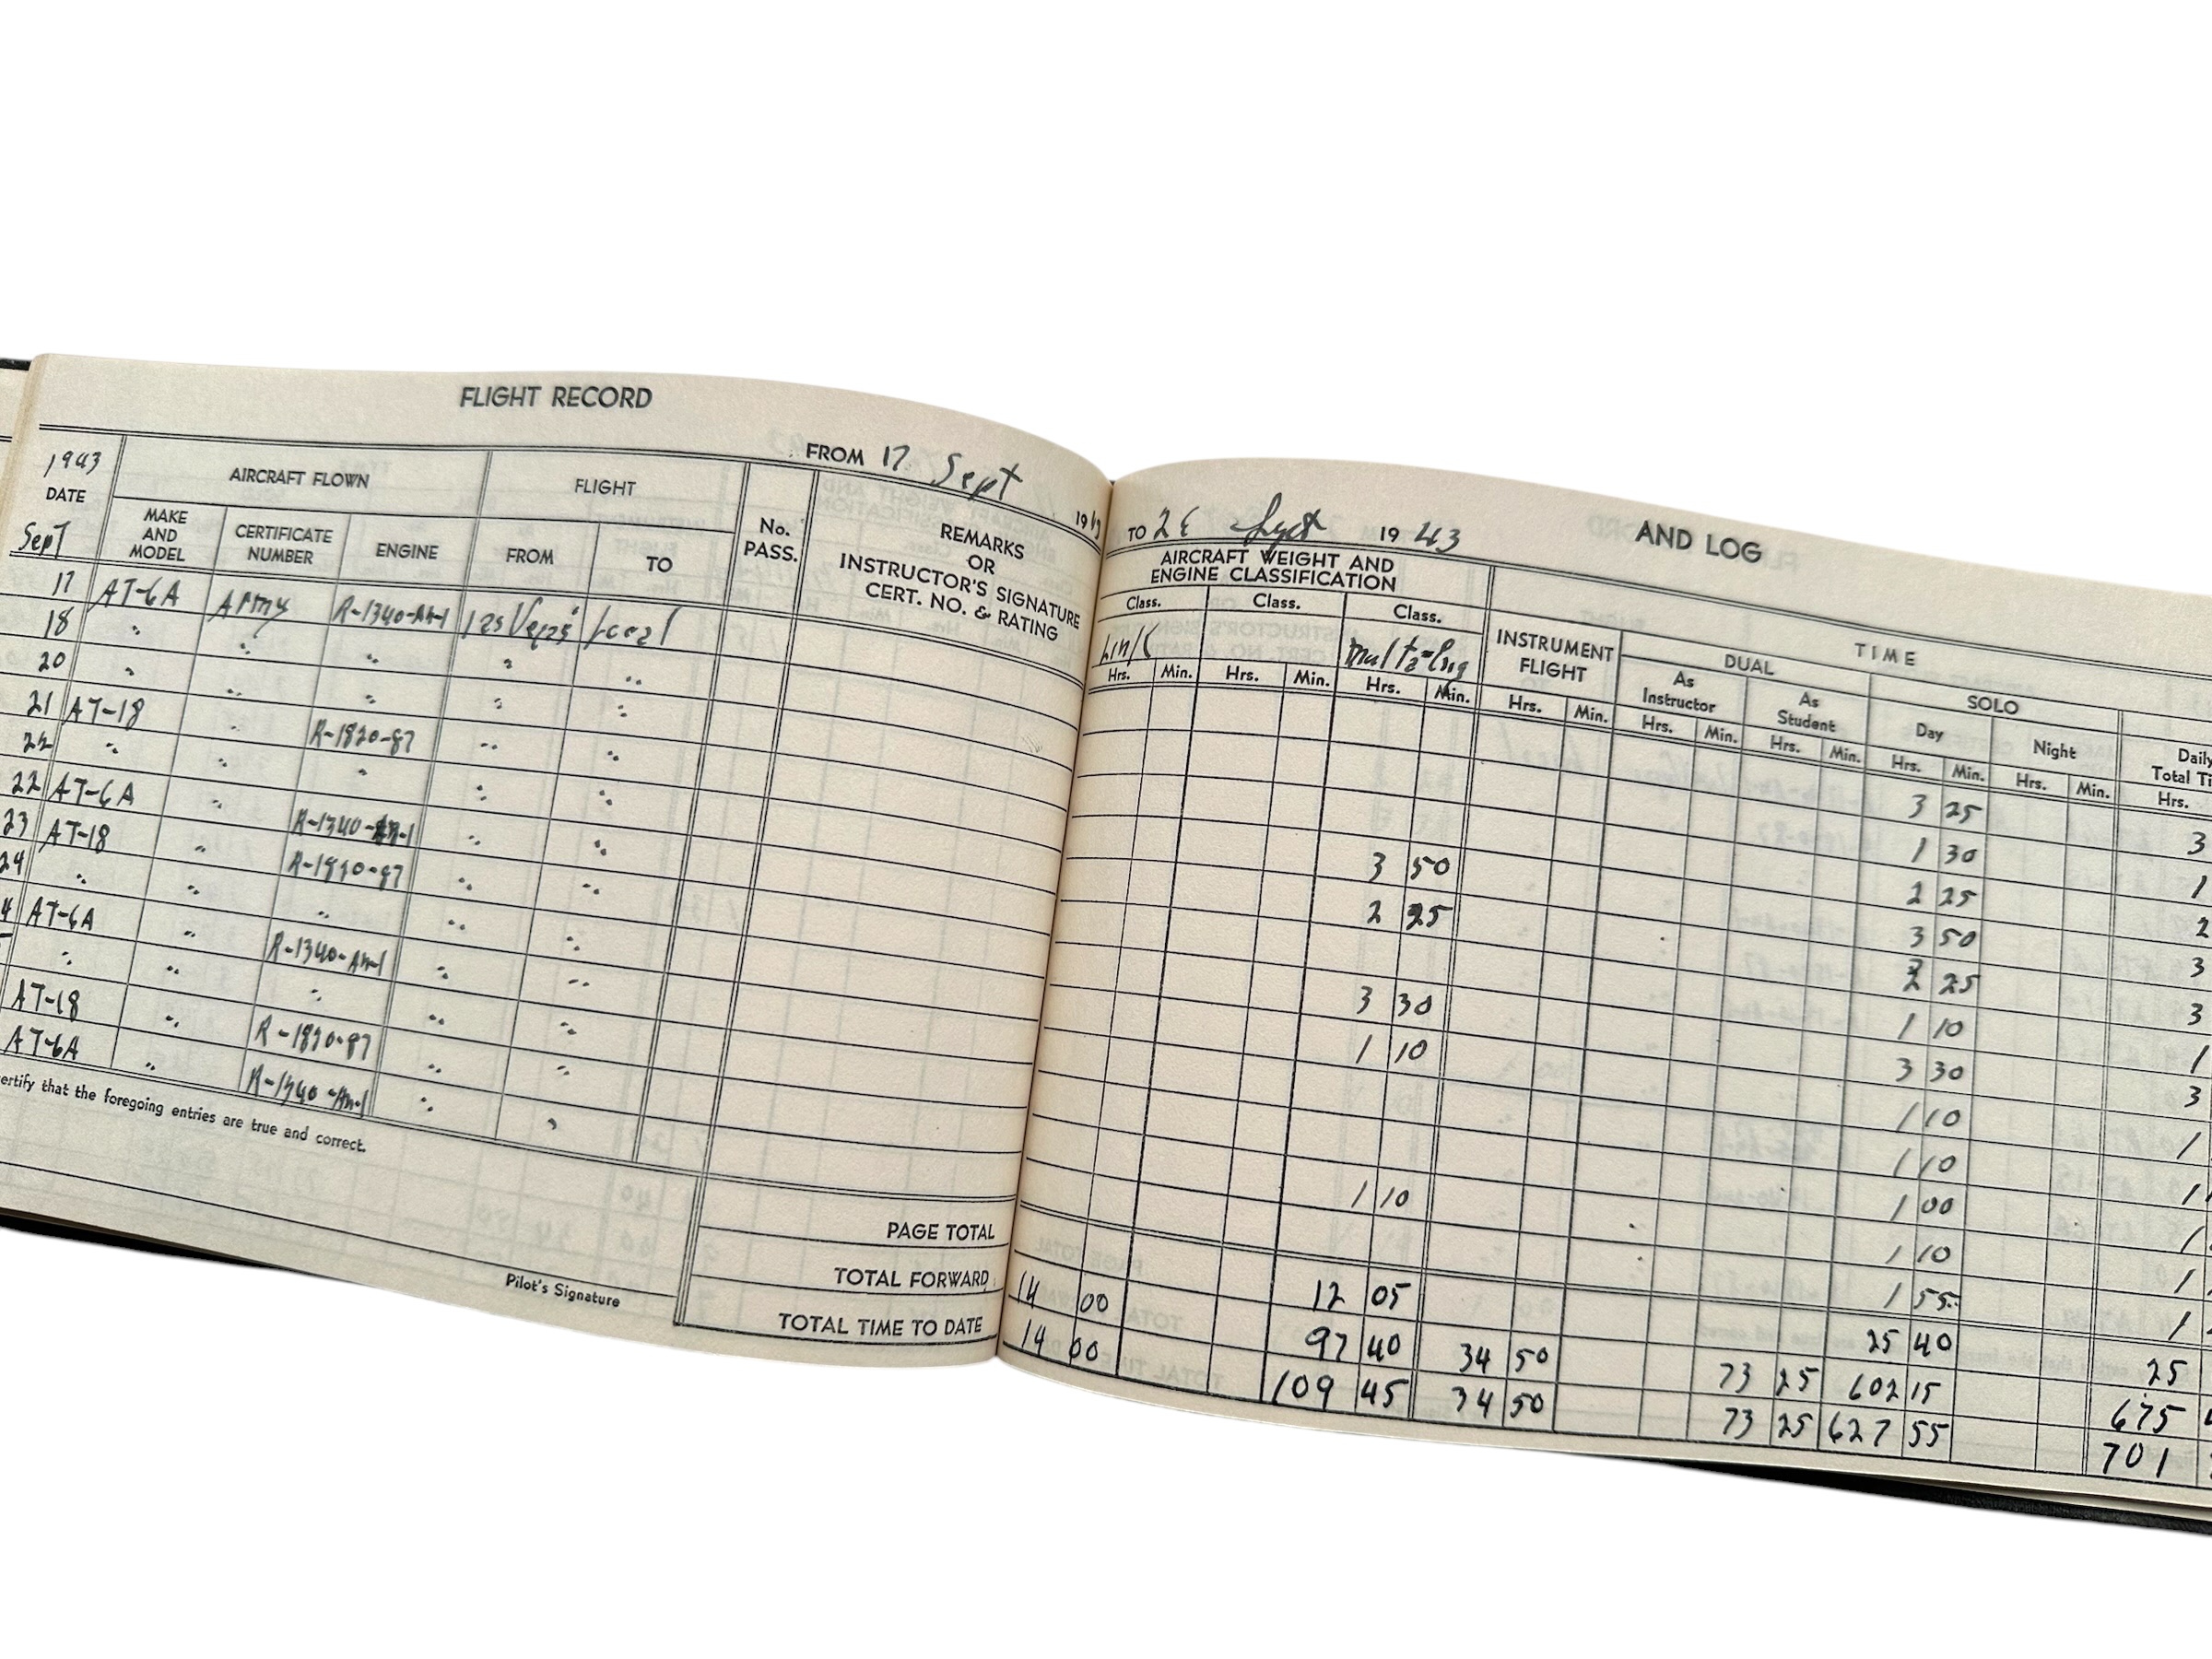 FLIGHT RECORD
FROM 17 Sept 19
1943 AIRCRAFT FLOWN FLIGHT No. PASS. REMARKS OR INSTRUCTOR'S SIGNATURE CERT. NO. & RATING
DATE MAKE AND MODEL CERTIFICATE NUMBER ENGINE FROM TO
Sept
17 AT-6A Army R-1340-An-1 Las Vegas Local
18 " " " " "
20 " " " " "
21 AT-18 " R-1820-87 " "
22 " " " " "
22 AT-6A " R-1340-An-1 " "
23 AT-18 " R-1820-87 " "
24 " " " " "
4 AT-6A " R-1340-An-1 " "
" " " " "
AT-18 " R-1820-87 " "
AT-6A " R-1340-An-1 " "
ertify that the foregoing entries are true and correct.
Pilot's Signature
PAGE TOTAL
TOTAL FORWARD
TOTAL TIME TO DATE
AND LOG
TO Sept 19 43
AIRCRAFT WEIGHT AND ENGINE CLASSIFICATION INSTRUMENT FLIGHT TIME
Class. Class. Class. DUAL SOLO
Link As Instructor As Student Day Night Daily Total Ti
Hrs. Min. Hrs. Min. Hrs. Min. Hrs. Min. Hrs. Min. Hrs. Min. Hrs. Min. Hrs. Min. Hrs.
3 25 3
1 30 1
2 25 2
3 50 3 50 3
2 25 25 3
1 10 1
3 30 3 30 3
1 10 1 10 1
1 10 1
1 00 1
1 10 1 10 1
1 55 1
14 00 12 05 25 40 25
14 00 97 40 34 50 73 25 602 15 675
109 45 34 50 73 25 627 55 701